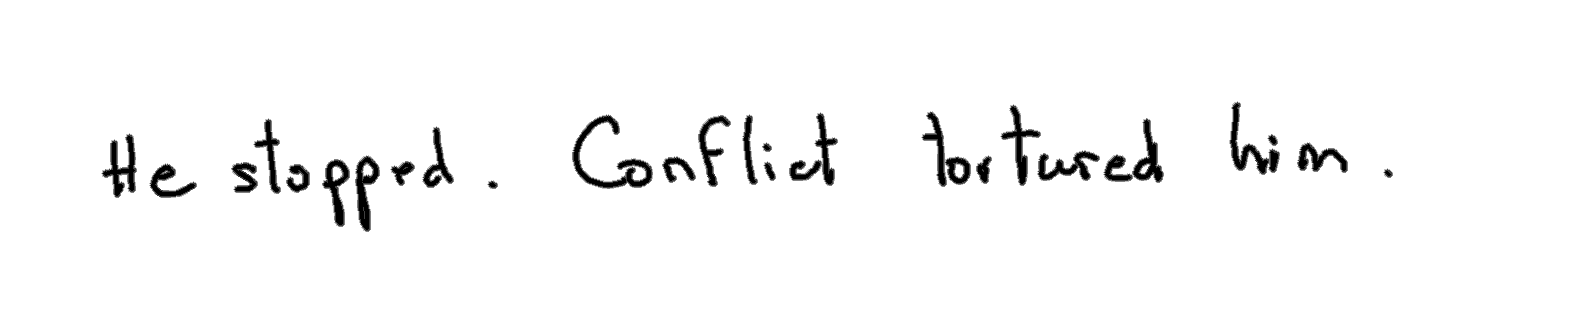 He stopped. Conflict tortured him.